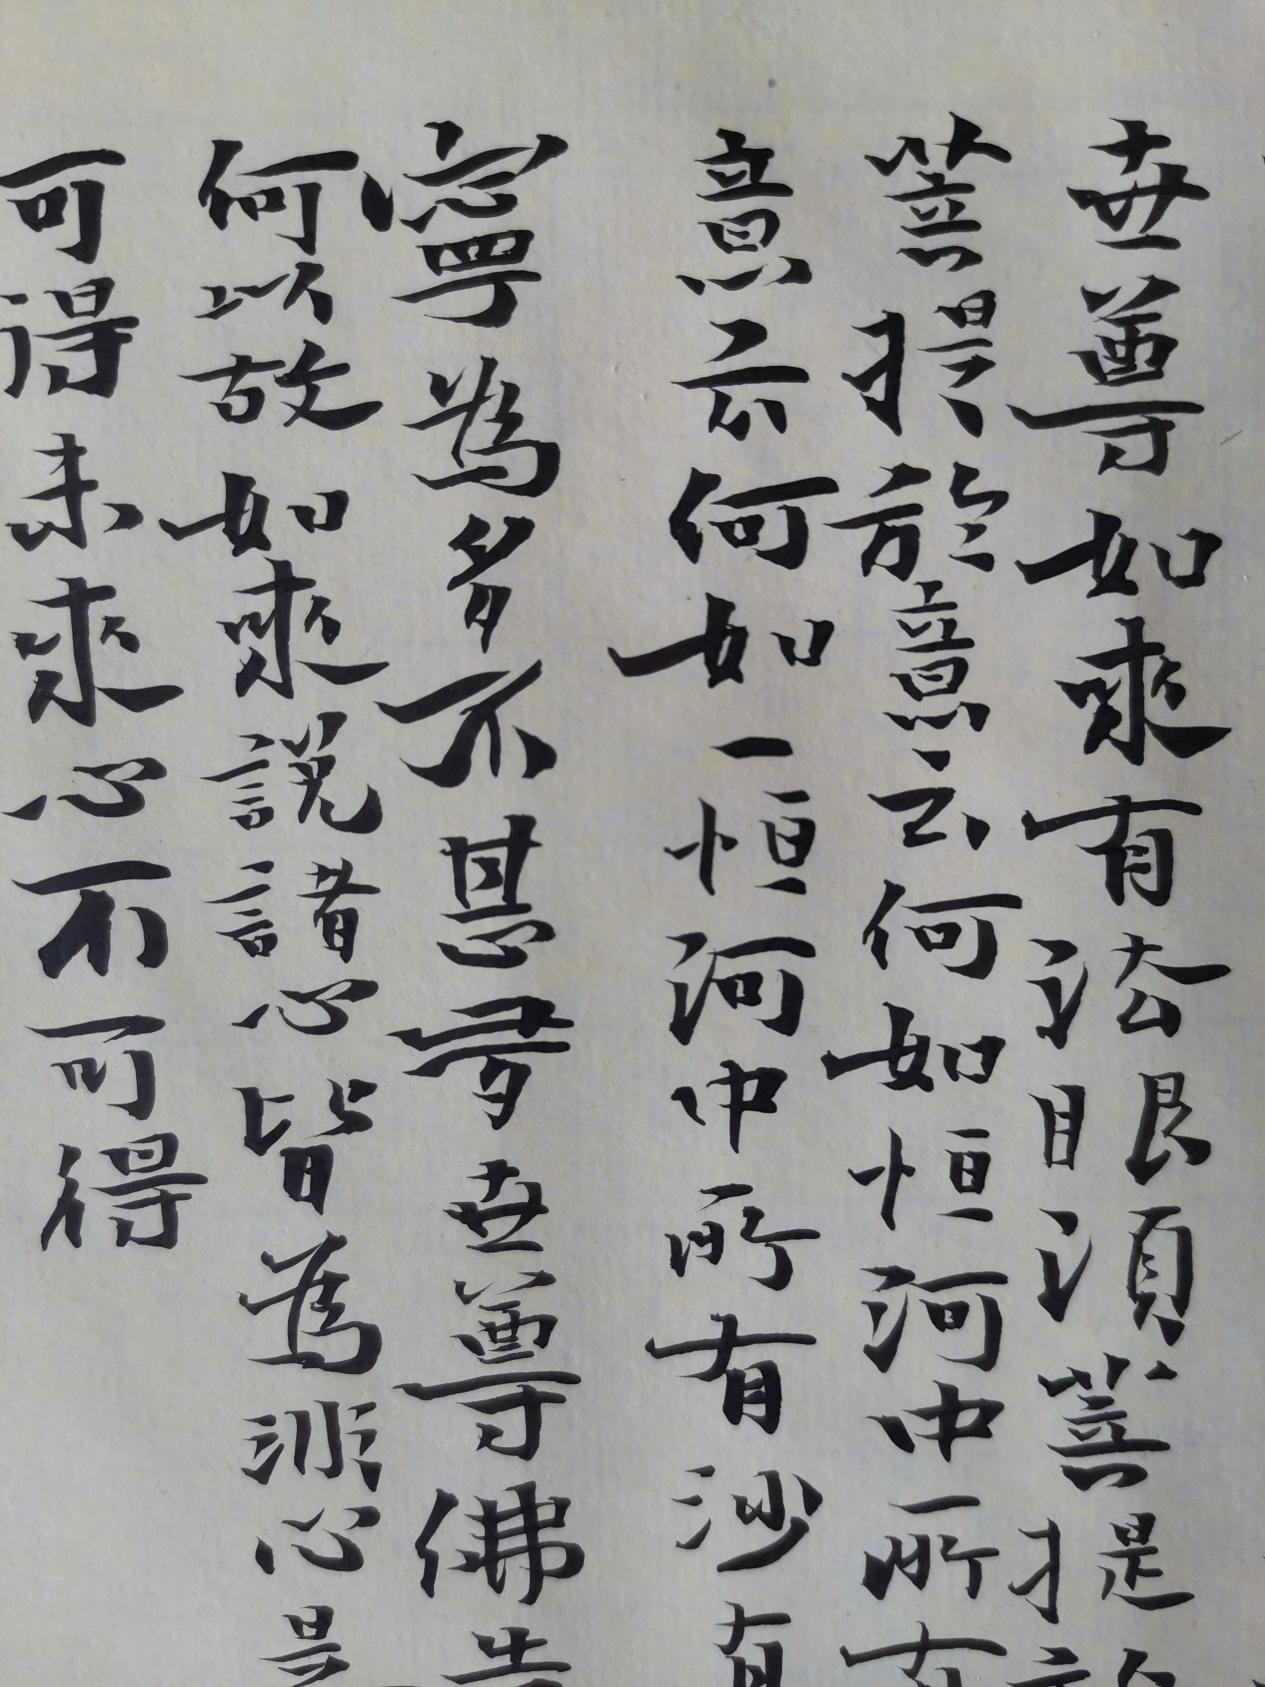 世尊如來有法眼須菩提於
菩提於意云何如恒河中所有
意云何如一恒河中所有沙有
寧為多不甚多世尊佛告
何以故如來說諸心皆為非心是
可得未來心不可得